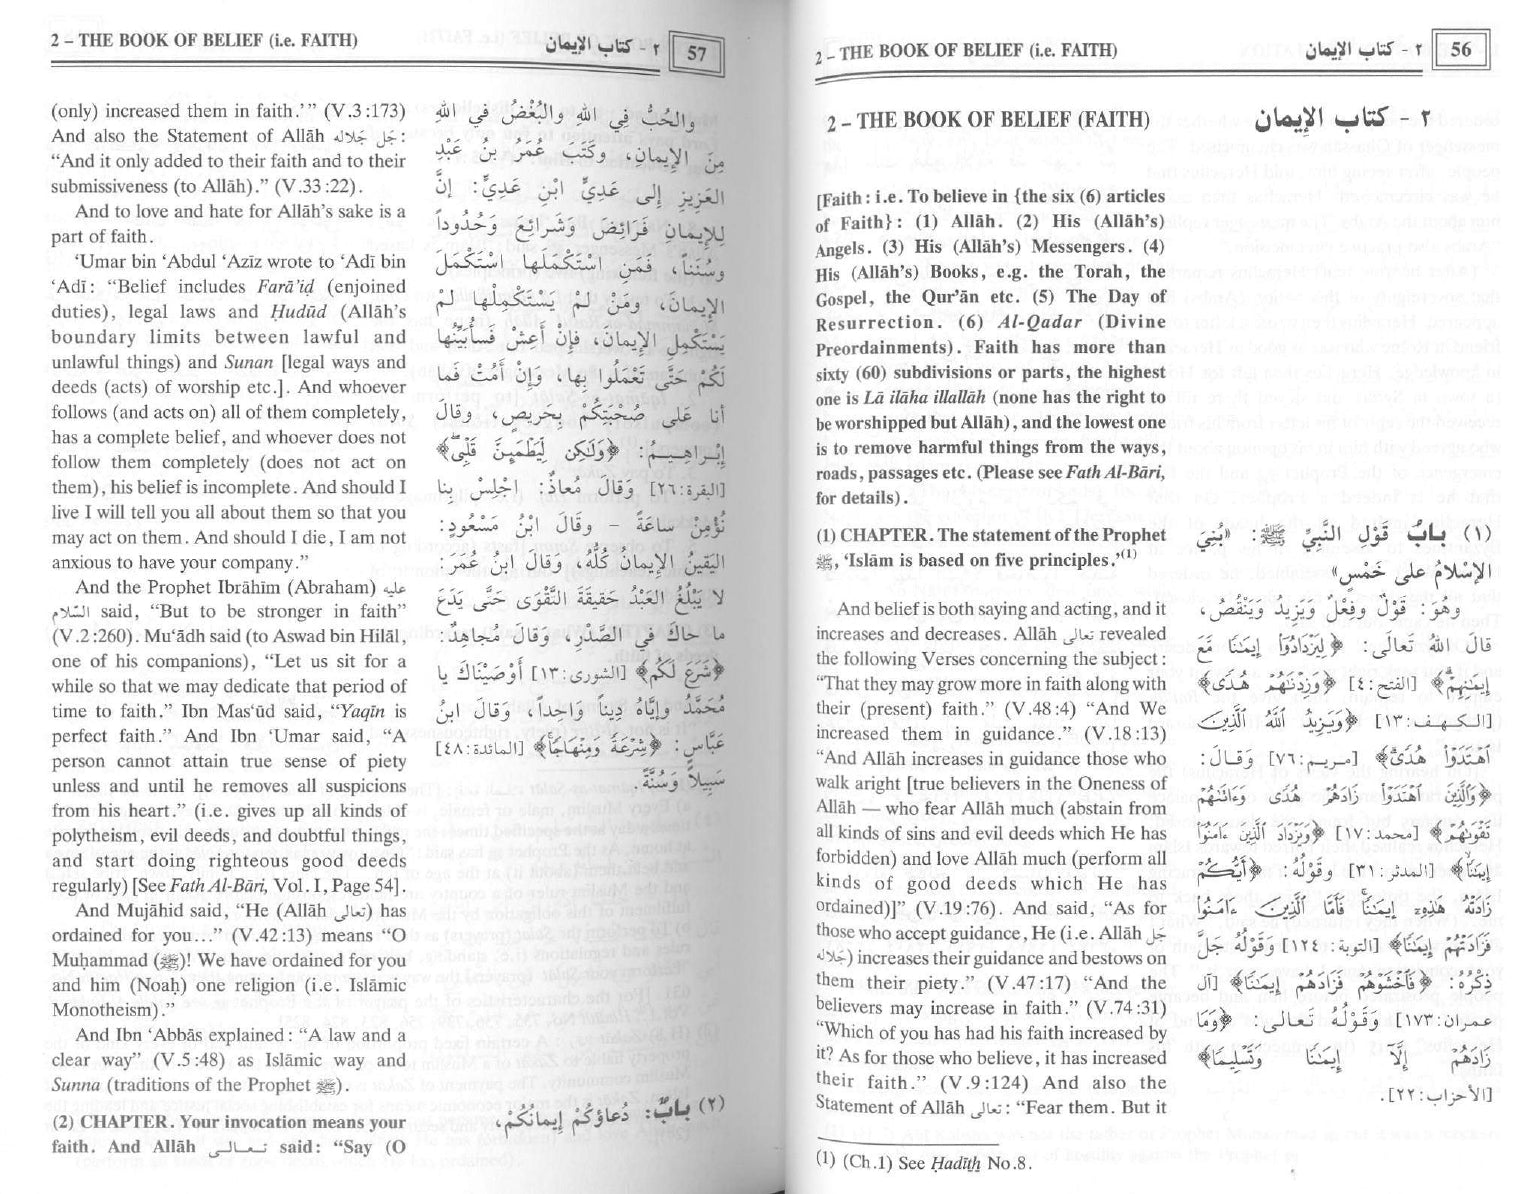 2 – THE BOOK OF BELIEF (i.e. FAITH)
٢ - كتاب الإيمان
56
2 – THE BOOK OF BELIEF (FAITH)
٢ - كتاب الإيمان
[Faith : i.e. To believe in {the six (6) articles
of Faith} : (1) Allāh. (2) His (Allāh’s)
Angels. (3) His (Allāh’s) Messengers. (4)
His (Allāh’s) Books, e.g. the Torah, the
Gospel, the Qur’ān etc. (5) The Day of
Resurrection. (6) Al-Qadar (Divine
Preordainments). Faith has more than
sixty (60) subdivisions or parts, the highest
one is Lā ilāha illallāh (none has the right to
be worshipped but Allāh), and the lowest one
is to remove harmful things from the ways,
roads, passages etc. (Please see Fath Al-Bāri,
for details).
(1) CHAPTER. The statement of the Prophet
ﷺ, ‘Islām is based on five principles.’(1)
And belief is both saying and acting, and it
increases and decreases. Allāh تعالى revealed
the following Verses concerning the subject :
“That they may grow more in faith along with
their (present) faith.” (V.48 :4) “And We
increased them in guidance.” (V.18 :13)
“And Allāh increases in guidance those who
walk aright [true believers in the Oneness of
Allāh — who fear Allāh much (abstain from
all kinds of sins and evil deeds which He has
forbidden) and love Allāh much (perform all
kinds of good deeds which He has
ordained)]” (V.19 :76). And said, “As for
those who accept guidance, He (i.e. Allāh جل
جلاله) increases their guidance and bestows on
them their piety.” (V.47 :17) “And the
believers may increase in faith.” (V.74 :31)
“Which of you has had his faith increased by
it? As for those who believe, it has increased
their faith.” (V.9 :124) And also the
Statement of Allāh تعالى : “Fear them. But it
(١) بابُ قَوْلِ النَّبِيِّ ﷺ: «بُنِيَ
الإسْلامُ على خَمْسٍ»
وهُوَ: قَوْلٌ وفِعْلٌ ويَزِيدُ ويَنْقُصُ،
قالَ اللهُ تَعالى: ﴿لِيَزْدَادُوٓاْ إِيمَٰنًا مَّعَ
إِيمَٰنِهِمْ﴾ [الفتح: ٤] ﴿وَزِدْنَٰهُمْ هُدًى﴾
[الكهف: ١٣] ﴿وَيَزِيدُ ٱللَّهُ ٱلَّذِينَ
ٱهْتَدَوْاْ هُدًى﴾ [مريم: ٧٦] وَقالَ:
﴿وَٱلَّذِينَ ٱهْتَدَوْاْ زَادَهُمْ هُدًى وَءَاتَىٰهُمْ
تَقْوَىٰهُمْ﴾ [محمد: ١٧] ﴿وَيَزْدَادَ ٱلَّذِينَ ءَامَنُوٓاْ
إِيمَٰنًا﴾ [المدثر: ٣١] وقَوْلُهُ: ﴿أَيُّكُمْ
زَادَتْهُ هَٰذِهِۦٓ إِيمَٰنًا فَأَمَّا ٱلَّذِينَ ءَامَنُواْ
فَزَادَتْهُمْ إِيمَٰنًا﴾ [التوبة: ١٢٤] وَقَوْلُهُ جَلَّ
ذِكْرُهُ: ﴿فَٱخْشَوْهُمْ فَزَادَهُمْ إِيمَٰنًا﴾ [آل
عمران: ١٧٣] وقَوْلُهُ تَعالى: ﴿وَمَا
زَادَهُمْ إِلَّآ إِيمَٰنًا وَتَسْلِيمًا﴾
[الأحزاب: ٢٢].
(1) (Ch.1) See Ḥadīth No.8.
2 – THE BOOK OF BELIEF (i.e. FAITH)
٢ - كتاب الإيمان
57
(only) increased them in faith.’” (V.3 :173)
And also the Statement of Allāh جل جلاله :
“And it only added to their faith and to their
submissiveness (to Allāh).” (V.33 :22).
And to love and hate for Allāh’s sake is a
part of faith.
‘Umar bin ‘Abdul ‘Azīz wrote to ‘Adī bin
‘Adī : “Belief includes Farā’iḍ (enjoined
duties), legal laws and Ḥudūd (Allāh’s
boundary limits between lawful and
unlawful things) and Sunan [legal ways and
deeds (acts) of worship etc.]. And whoever
follows (and acts on) all of them completely,
has a complete belief, and whoever does not
follow them completely (does not act on
them), his belief is incomplete. And should I
live I will tell you all about them so that you
may act on them. And should I die, I am not
anxious to have your company.”
And the Prophet Ibrāhīm (Abraham) عليه
السلام said, “But to be stronger in faith”
(V.2 :260). Mu‘ādh said (to Aswad bin Hilāl,
one of his companions), “Let us sit for a
while so that we may dedicate that period of
time to faith.” Ibn Mas‘ūd said, “Yaqīn is
perfect faith.” And Ibn ‘Umar said, “A
person cannot attain true sense of piety
unless and until he removes all suspicions
from his heart.” (i.e. gives up all kinds of
polytheism, evil deeds, and doubtful things,
and start doing righteous good deeds
regularly) [See Fath Al-Bāri, Vol. I, Page 54].
And Mujāhid said, “He (Allāh تعالى) has
ordained for you…” (V.42 :13) means “O
Muḥammad (ﷺ)! We have ordained for you
and him (Noaḥ) one religion (i.e. Islāmic
Monotheism).”
And Ibn ‘Abbās explained : “A law and a
clear way” (V.5 :48) as Islāmic way and
Sunna (traditions of the Prophet ﷺ).
(2) CHAPTER. Your invocation means your
faith. And Allāh تعالى said : “Say (O
والحُبُّ في اللهِ والبُغْضُ في اللهِ
مِنَ الإيمَانِ، وكَتَبَ عُمَرُ بنُ عَبْدِ
العَزِيزِ إلى عَدِيِّ ابْنِ عَدِيٍّ: إنَّ
لِلإيمَانِ فَرَائِضَ وَشَرائِعَ وَحُدُوداً
وسُنَناً، فَمَنِ اسْتَكْمَلَها اسْتَكْمَلَ
الإيمَانَ، ومَنْ لَم يَسْتَكْمِلْها لَمْ
يَسْتَكْمِلِ الإيمَانَ، فإنْ أعِشْ فَسأُبَيِّنُها
لَكُمْ حَتَّى تَعْمَلوا بِها، وَإنْ أمُتْ فَما
أنا عَلى صُحْبَتِكُمْ بِحَرِيصٍ، وقالَ
إبْراهِيمُ: ﴿وَلَٰكِن لِّيَطْمَئِنَّ قَلْبِى﴾
[البقرة: ٢٦٠] وَقَالَ مُعاذٌ: اجْلِسْ بِنا
نُؤْمِنْ سَاعَةً – وقالَ ابْنُ مَسْعُودٍ:
اليَقِينُ الإيمَانُ كُلُّهُ، وقالَ ابنُ عُمَرَ:
لا يَبْلُغُ العَبْدُ حَقيقَةَ التَّقْوَى حَتَّى يَدَعَ
ما حاكَ في الصَّدْرِ، وَقالَ مُجاهِدٌ:
﴿شَرَعَ لَكُم﴾ [الشورى: ١٣] أَوْصَيْنَاكَ يا
مُحَمَّدُ وإيَّاهُ دِيناً وَاحِداً، وَقالَ ابنُ
عَبَّاسٍ: ﴿شِرْعَةً وَمِنْهَاجًا﴾ [المائدة: ٤٨]
سَبِيلاً وَسُنَّةً.
(٢) بابٌ: دُعاؤكُمْ إيمانُكُمْ،